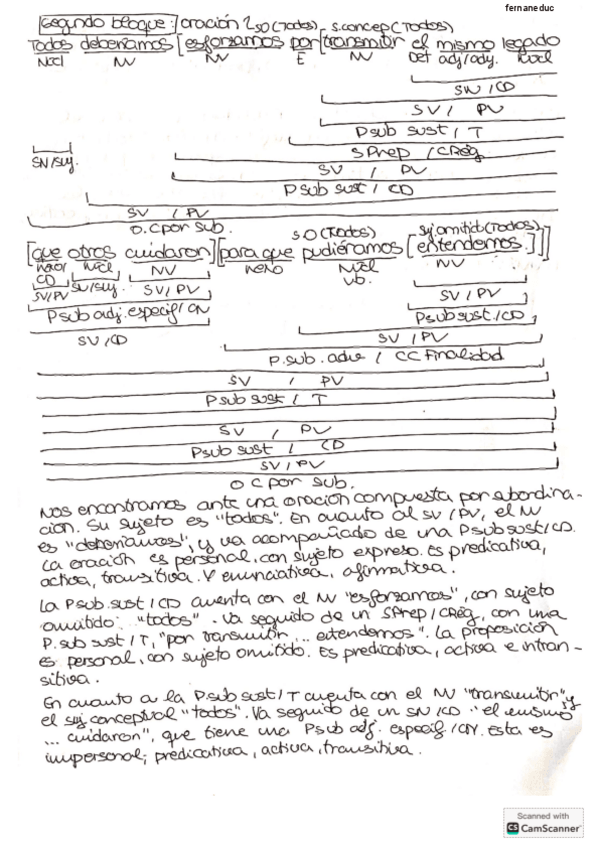 fernaneduc
Segundo bloque: oración 2 SO (Todos) S.concep (Todos)
Todos deberíamos [esforzarnos por [transmitir el mismo legado
Nucl NV NV E NV Det adj/ady. Nucl
SN / CD
SV / PV
P sub sust / T
SN/suj. SPrep / CRég
SV / PV
P sub sust / CD
SV / PV
O.C por sub.
SO (Todos) Sj omitido (Todos)
[que otros cuidaron] [para que pudiéramos [entendernos.]]]
nexo/ Nucl NV nexo Nucl NV
CD vb.
SV/PV SN/suj. SV/PV SV / PV
P sub adj. especif / CN P sub sust. / CD
SN/CD SV / PV
P. sub. adv / CC Finalidad
SV / PV
P sub sust / T
SV / PV
P sub sust / CD
SV / PV
O C por sub.
Nos encontramos ante una oración compuesta por subordina-
ción. Su sujeto es "todos". En cuanto al SV / PV, el NV
es "deberíamos", y va acompañado de una P sub sust/CD.
La oración es personal, con sujeto expreso. Es predicativa,
activa, transitiva. Y enunciativa, afirmativa.
La P sub. sust / CD cuenta con el NV "esforzarnos", con sujeto
omitido "todos". Va seguido de un SPrep/CRég, con una
P. sub sust / T, "por transmitir ... entendernos". La proposición
es personal, con sujeto omitido. Es predicativa, activa e intran-
sitiva.
En cuanto a la P.sub sust / T cuenta con el NV "transmitir" y
el sj conceptual "todos". Va seguido de un SN / CD "el mismo
... cuidaron", que tiene una P sub adj. especif / CN. Esta es
impersonal; predicativa, activa, transitiva.
Scanned with
CS CamScanner